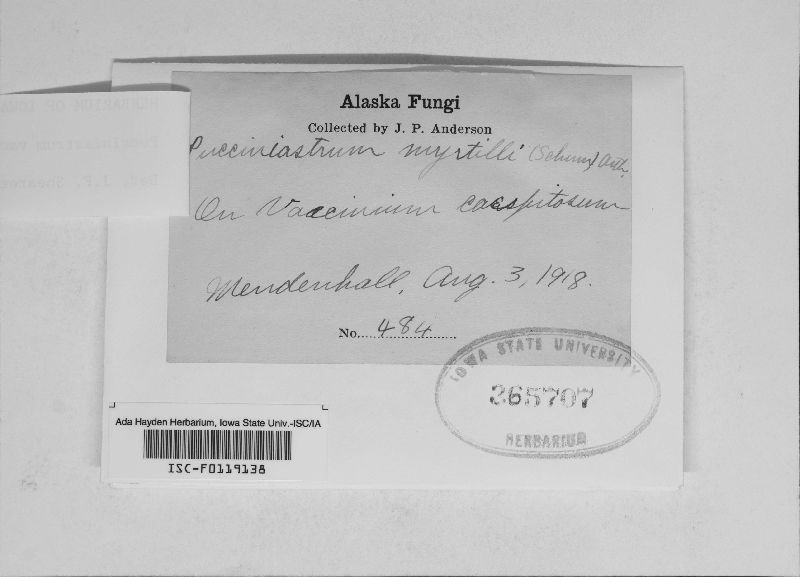 Alaska Fungi
Collected by J. P. Anderson
Pucciniastrum myrtilli (Schum) Arth.
On Vaccinium caespitosum
Mendenhall, Aug. 3, 1918.
No. 484
IOWA STATE UNIVERSITY
265707
HERBARIUM
Ada Hayden Herbarium, Iowa State Univ.-ISC/IA
ISC-F0119138